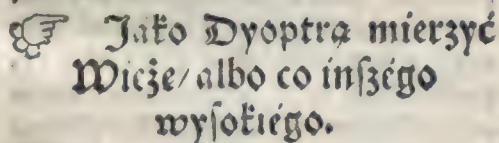 ☞ Jáko Dyoptrą mierzyć
Wieżé/ albo co inſzégo
wyſokiégo.